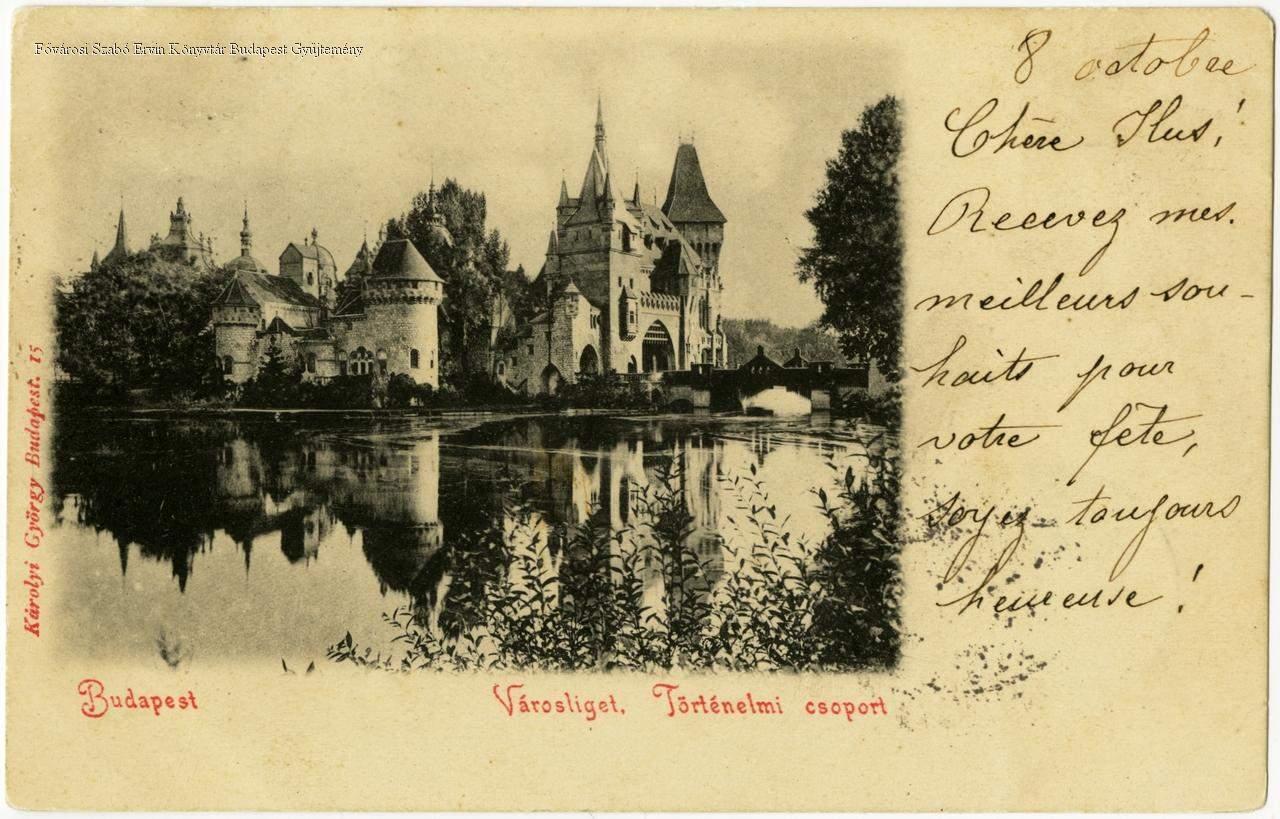 Fővárosi Szabó Ervin Könyvtár Budapest Gyűjtemény
8 octobre
Chère Ilus!
Recevez mes
meilleurs sou-
haits pour
votre fête,
soyez toujours
heureuse!
Károlyi György Budapest. 15
Budapest
Városliget. Történelmi csoport